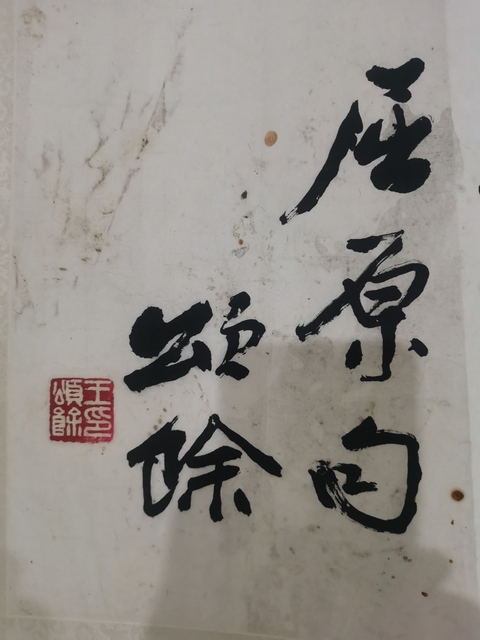 屈原句
頌餘
王印
頌餘